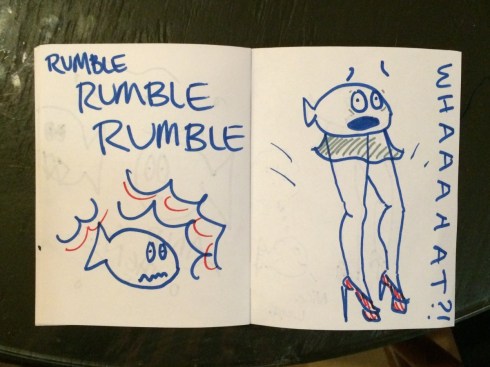 RUMBLE
RUMBLE
RUMBLE
WHAAAAAT?!